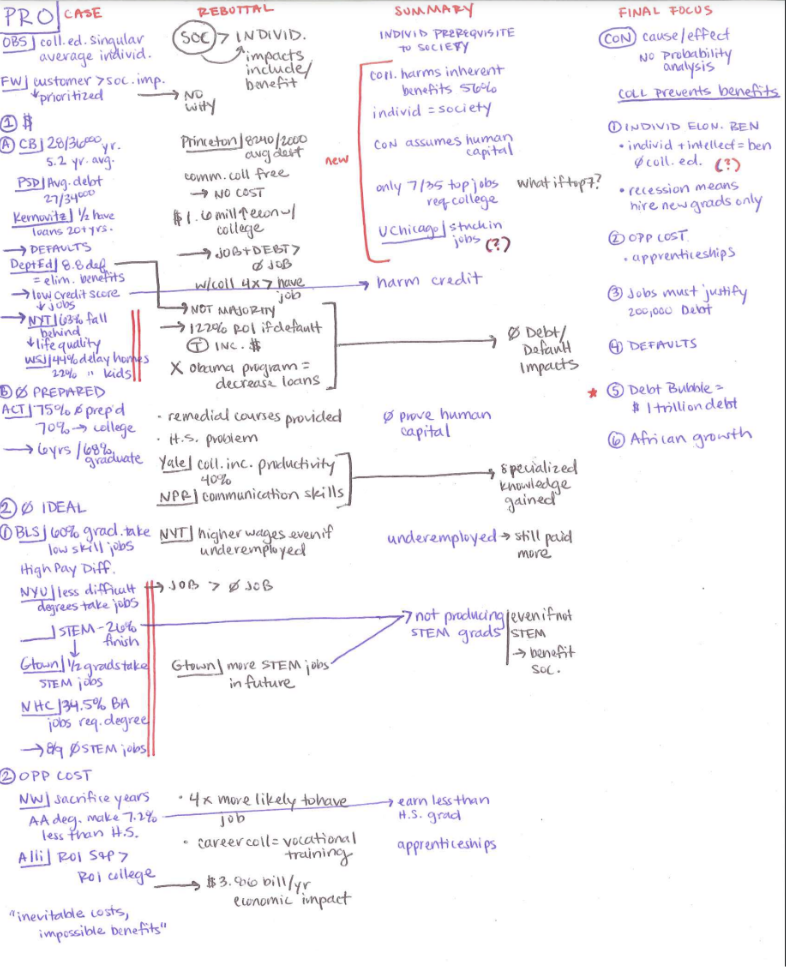 PRO CASE
OBS coll.ed. singular
average individ.
FW customer > soc. imp.
↓ prioritized
① $
Ⓐ CB 28/36000 yr.
5.2 yr. avg.
PSD Avg. debt
27/34000
Kernovitz 1/2 have
loans 20+ yrs.
→ DEFAULTS
Dept Ed 8.8 def
= elim. benefits
→ low credit score
↓ jobs
→ NYT 63% fall
behind
↓ life quality
WSJ 44% delay homes
22% " kids
Ⓑ Ø PREPARED
ACT 75% Ø prep'd
70% → college
→ 6yrs / 68%
graduate
② Ø IDEAL
① BLS 60% grad. take
low skill jobs
High Pay Diff.
NYU less difficult
degrees take jobs
STEM - 26%
finish
Gtown 1/2 grads take
STEM jobs
NHC 34.5% BA
jobs req. degree
→ 8/9 Ø STEM jobs
② OPP COST
NW sacrifice years
AA deg. make 7.2%
less than H.S.
Alli ROI S&P >
ROI college
"inevitable costs,
impossible benefits"
REBUTTAL
SOC > INDIVID.
impacts
include/
benefit
→ NO
WHY
Princeton 8240/2000
avg debt
comm. coll free
→ NO COST
$1.6 mill ↑ econ w/
college
→ JOB + DEBT >
Ø JOB
w/coll 4x > have
job
→ NOT MAJORITY
→ 122% ROI if default
Ⓣ INC. $
X Obama program =
decrease loans
· remedial courses provided
· H.S. problem
Yale coll. inc. productivity
40%
NPR communication skills
NYT higher wages even if
underemployed
→ JOB > Ø JOB
Gtown more STEM jobs
in future
· 4x more likely to have
job
· career coll = vocational
training
→ $3.866 bill/yr
economic impact
SUMMARY
INDIVID PREREQUISITE
TO SOCIETY
new
coll. harms inherent
benefits 56%
individ = society
CON assumes human
capital
only 7/35 top jobs
req college
what if top 7?
UChicago stuck in
jobs (?)
→ harm credit
→ Ø Debt/
Default
Impacts
Ø prove human
capital
→ specialized
knowledge
gained
underemployed → still paid
more
→ not producing
STEM grads
even if not
STEM
→ benefit
soc.
→ earn less than
H.S. grad
apprenticeships
FINAL FOCUS
CON cause/effect
NO Probability
analysis
COLL prevents benefits
① INDIVID ECON. BEN
· individ + intellect = ben
Ø coll. ed. (?)
· recession means
hire new grads only
② OPP COST
· apprenticeships
③ Jobs must justify
200,000 Debt
④ DEFAULTS
★ ⑤ Debt Bubble =
$1 trillion debt
⑥ African growth